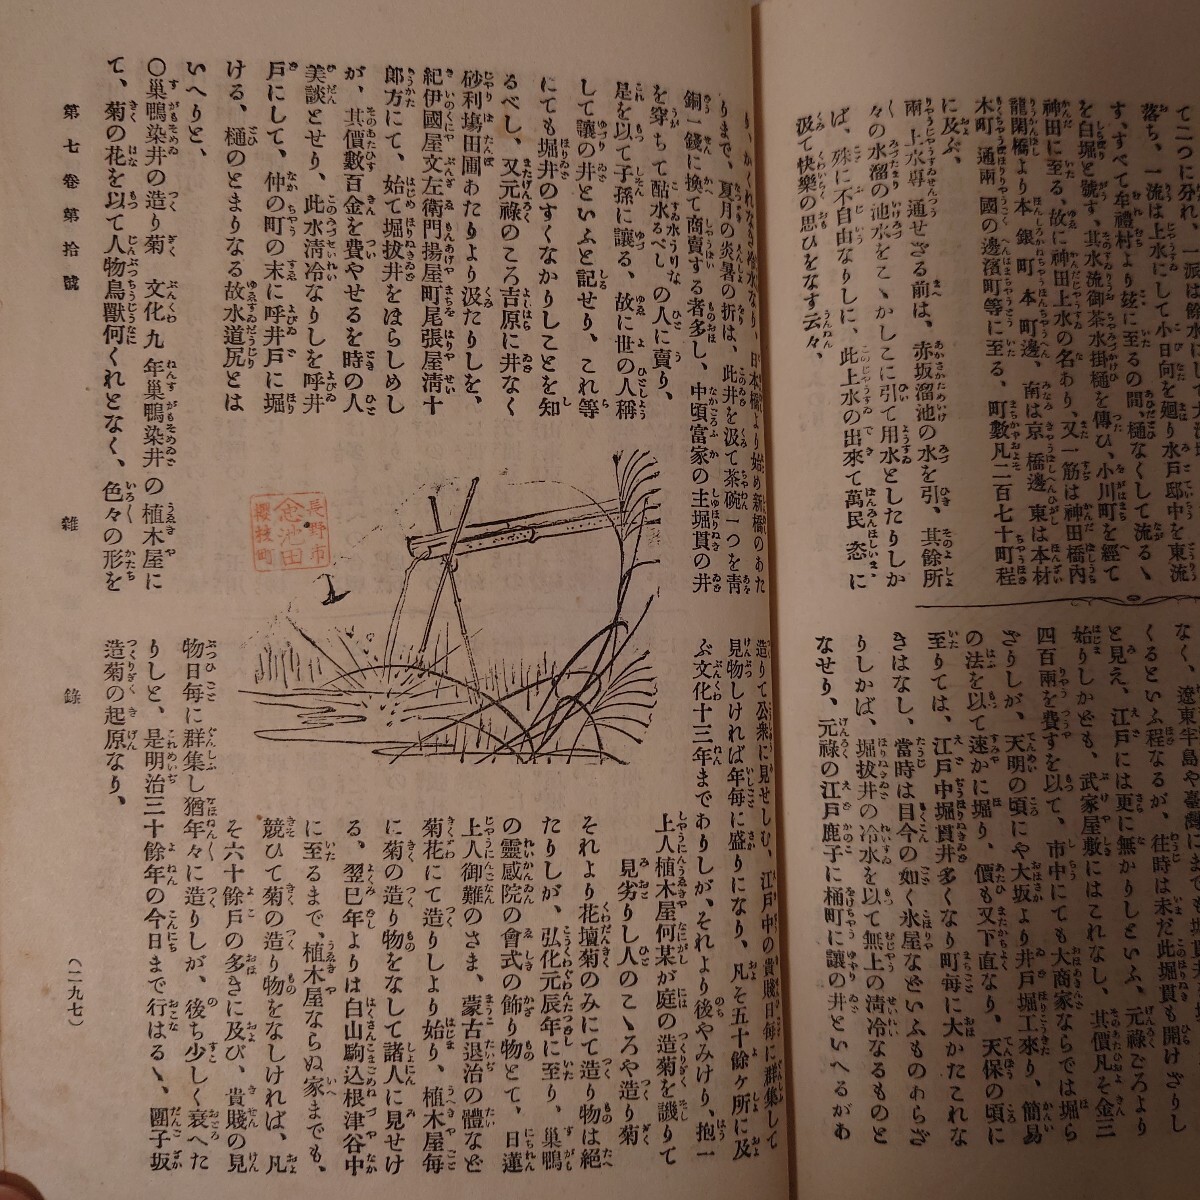 落ち、一流は上水にして小日向を廻り水戸邸中を東流
す、すべて牟禮村より玆に至るの間、樋なくして流るゝ
を白堀と號す、其水流御茶水掛樋を傳ひ、小川町を經て
神田に至る、故に神田上水の名あり、又一筋は神田橋内
龍閑橋より本銀町本町邊、南は京橋邊、東は本材
木町、通兩國の邊濱町等に至る、町數凡二百七十町程
に及ぶ、
雨、上水專通せざる前は、赤坂溜池の水を引、其餘所
々の水溜の池水をこゝかしこに引て用水としたりしか
ば、殊に不自由なりしに、此上水の出來て萬民恣に
汲て快樂の思ひをなす云々、
くるといふ程なるが、往時は未だ此堀貫も開けざりし
と見え、江戸には更に無かりしといふ、元祿ごろより
始りしかども、武家屋敷にはこれなし、其價凡そ金三
四百兩を費すを以て、市中にても大商家ならでは堀ら
ざりしが、天明の頃にや大坂より井戸堀工來り、簡易
の法を以て速かに堀り、價も又下直なり、天保の頃に
至りては、江戸中堀貫井多くなり町毎に大かたこれな
きはなし、當時は目今の如く氷屋などいふものあらざ
りしかば、堀拔井の冷水を以て無上の清冷なるものと
なせり、元祿の江戸鹿子に桶町に讓の井といへるがわ
り、かくれなき冷水なり、日本橋より始め新橋のあた
りまで、夏月の炎暑の折は、此井を汲て茶碗一つを靑
銅一錢に換て商賣する者多し、中頃富家の主堀貫の井
を穿ちて酤水るべしの人に賣り、
是を以て子孫に讓る、故に世の人稱
して讓の井といふと記せり、これ等
にても堀井のすくなかりしことを知
るべし、又元祿のころ吉原に井なく
砂利塲田圃あたりより汲たりしを、
紀伊國屋文左衛門揚屋町尾張屋淸十
郎方にて、始て堀拔井をほらしめし
が、其價數百金を費やせるを時の人
美談とせり、此水淸冷なりしを呼井
戸にして、仲の町の末に呼井戸に堀
ける、樋のとまりなる故水道尻とは
いへりと、
〇巢鴨染井の造り菊　文化九年巢鴨染井の植木屋に
て、菊の花を以て人物鳥獸何くれとなく、色々の形を
造りて公衆に見せしむ、江戸中の貴賤日毎に群集して
見物しければ年毎に盛りになり、凡そ五十餘ヶ所に及
ぶ文化十三年までありしが、それより後やみけり、抱一
上人植木屋何某が庭の造菊を譏りて
見劣りし人のこゝろや造り菊
それより花壇菊のみにて造り物は絕
たりしが、弘化元辰年に至り、巢鴨
の靈感院の會式の飾り物とて、日蓮
上人御難のさま、蒙古退治の體など
菊花にて造りしより始り、植木屋毎
に菊の造り物をなして諸人に見せけ
る、翌巳年よりは白山駒込根津谷中
に至るまで、植木屋ならぬ家までも、
競ひて菊の造り物をなしければ、凡
そ六十餘戸の多きに及び、貴賤の見
物日毎に群集し猶年々に造りしが、後ち少しく衰へた
りしと、是明治三十餘年の今日まで行はるゝ、團子坂
造菊の起原なり、
第七卷第拾號
雜錄
（二九七）
長野市
櫻枝町